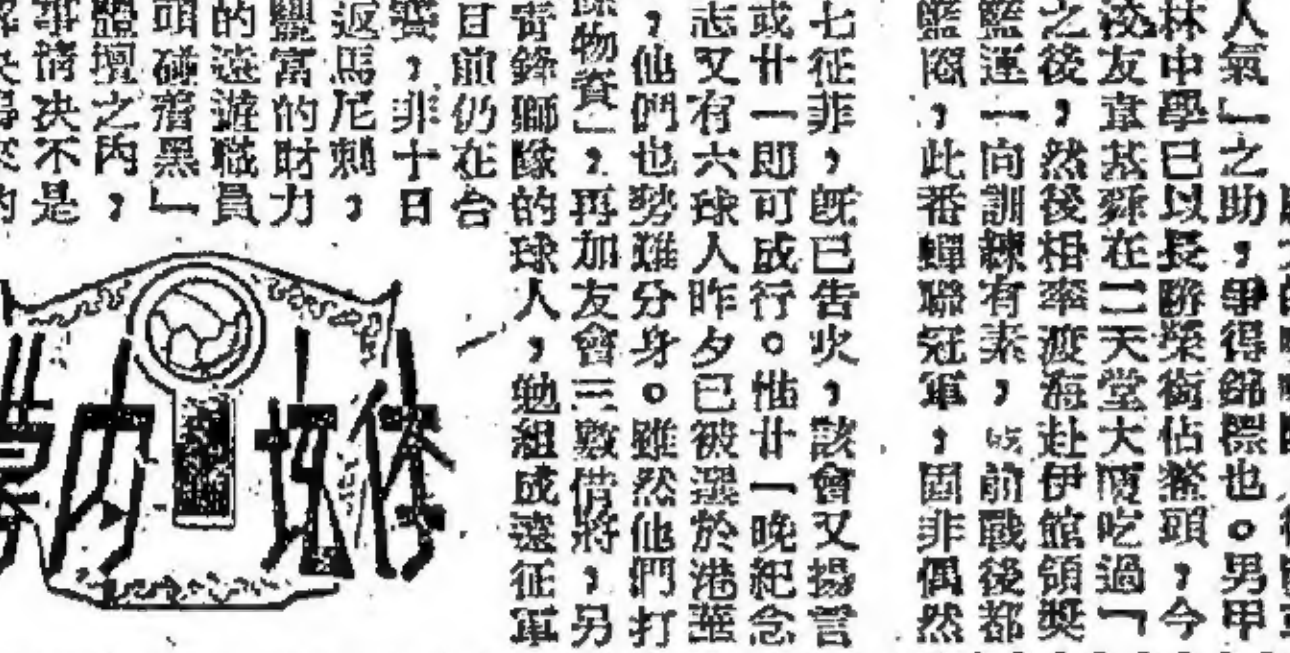 人氣」之助，爭得錦標也。男甲
林中學已以長勝榮銜佔鰲頭，今
在二天堂大廈吃過「
之後，然後相率渡海赴伊館領獎
籃運一向訓練有素，前戰後都
此番蟬聯冠軍，固非偶然
七征非，既已告吹，該會又揚言
或廿一即可成行。惟廿一晚紀念
志又有六球人昨夕已被選於港華
，他們也勢難分身。雖然他們打
物資」，再加友會三數借將，另
青鋒獅隊的球人，勉組成遠征軍
目前仍在台
賽，非十日
返馬尼剌，
豐富的財力
的遠遊職員
頭碰着黑」
體壇之內，
事情決不是
体壇內幕